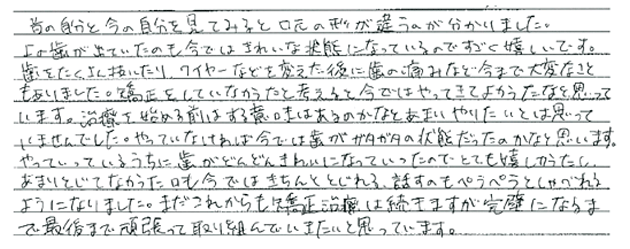 昔の自分と今の自分を見てみると口元の形が違うのが分かりました。
上の歯が出ていたのも今ではきれいな状態になっているのですごく嬉しいです。
歯をたくさん抜いたり、ワイヤーなどを変えた後に歯の痛みなど今まで大変なこと
もありました。矯正をしていなかったと考えると今ではやってきてよかったなと思って
います。治療を始める前はする意味はあるのかなとあまりやりたいとは思って
いませんでした。やっていなければ今では歯がガタガタの状態だったのかなと思います。
やっていっているうちに歯がどんどんきれいになっていったのでとても嬉しかったし、
あまりとじてなかった口も今ではきちんととじれる、話すのもペラペラとしゃべれる
ようになりました。まだこれからも矯正治療は続きますが完璧になるま
で最後まで頑張って取り組んでいきたいと思っています。